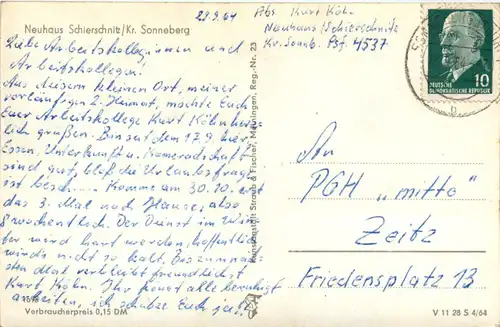 Neuhaus Schierschnitz/Kr. Sonneberg
29.9.64
Abs. Kurt Köhn
Neuhaus/Schierschnitz
Kr. Sonnb. Psf. 4537
Liebe Arbeitskolleginnen und
Arbeitskollegen!
Aus diesem kleinen Ort, meiner
vorläufigen 2. Heimat, möchte Euch
Euer Arbeitskollege Kurt Köhn herz-
lich grüßen. Bin seit dem 17.9. hier,
Essen, Unterkunft u. Kameradschaft
sind gut, bloß die Urlaubsfrage
ist besch... Komme am 30.10. erst
das 3. Mal nach Hause, also
wöchentlich. Der Dienst im Win-
ter wird hart werden, hoffentlich
wirds nicht so kalt. Bis zum näch-
sten Mal verbleibt freundlichst
Kurt Köhn. Ihr könnt alle beruhigt
arbeiten, ich schütze Euch ja!!
Verbraucherpreis 0,15 DM
Kunstanstalt Straub & Fischer, Meiningen, Reg.-Nr. 23
10
DEUTSCHE
DEMOKRATISCHE REPUBLIK
An
PGH „Mitte"
Zeitz
Friedensplatz 13
V 11 28 S 4/64